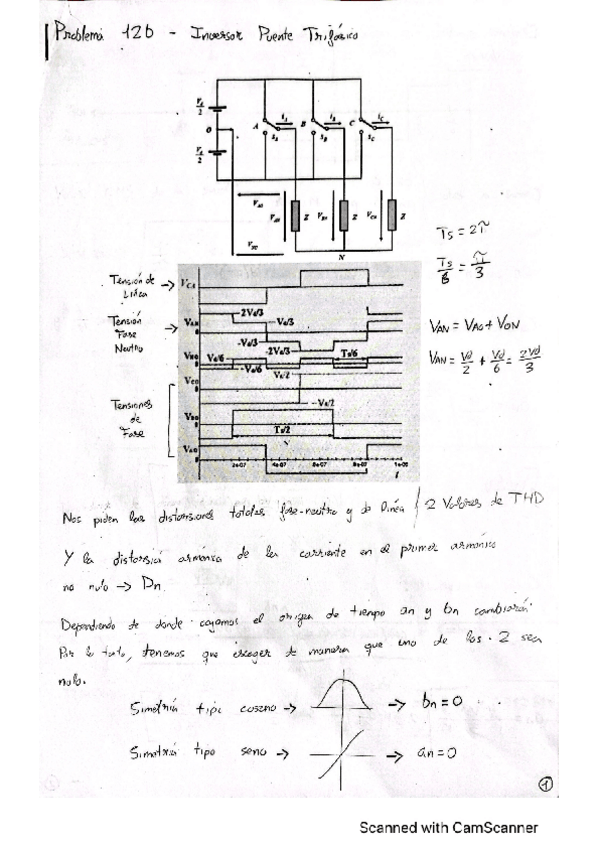 Problema 12b - Inversor Puente Trifásico
Vd/2
O
Vd/2
A
B
C
SA
SB
SC
iA
iB
iC
VAN
VBN
VCN
Z
Z
Z
N
Ts = 2π
Ts/6 = π/3
VAN = VAO + VON
VAN = Vd/2 + Vd/6 = 2Vd/3
Tensión de
Línea
VCA
2Vd/3
Vd/3
Tensión
Fase
Neutro
VAN
-Vd/3
-2Vd/3
Ts/6
Vd/6
-Vd/6
Vd/2
VCO
-Vd/2
Tensiones
de
Fase
VBO
Ts/2
VAO
2e-07
4e-07
6e-07
8e-07
1e-06
t
Nos piden las distorsiones totales fase-neutro y de línea / 2 Valores de THD
Y la distorsión armónica de la corriente en el primer armónico
no nulo -> Dn.
Dependiendo de donde cojamos el origen de tiempo an y bn cambiarán
Por lo tanto, tenemos que escoger de manera que uno de los 2 sea
nulo.
Simetría tipo coseno -> -> bn = 0
Simetría tipo seno -> -> an = 0
1
Scanned with CamScanner